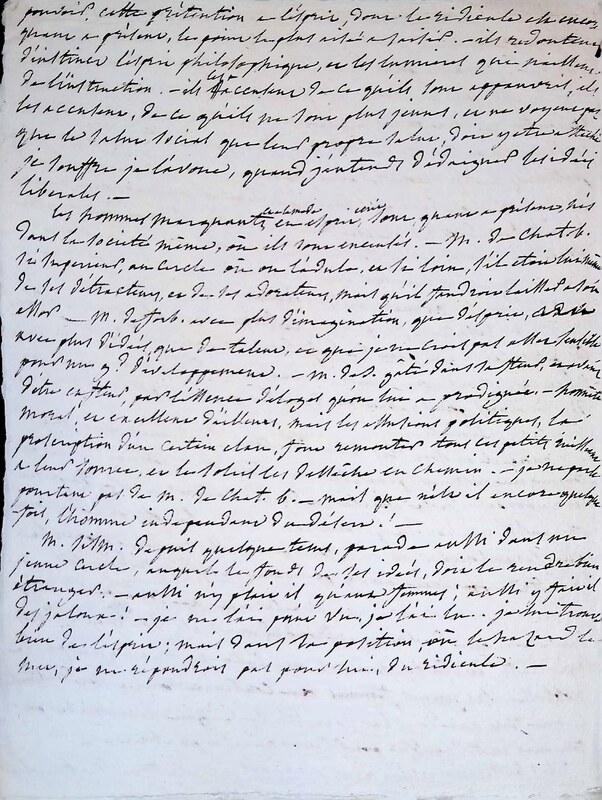 pouvoir, cette prétention a l'esprit, dont le ridicule est encor
quant a présent, le point le plus aisé a saisir. - ils redoutent
d'instinct l'esprit philosophique, et les lumieres qui naissent
de l'instruction. - ils l'accusent de ce qu'ils sont appauvris, ils
les accusent, de ce qu'ils ne sont plus jeunes, et ne voyent pas
que le salut social que leur propre salut, doit y etre attaché
je souffre je l'avoue, quand j'entends dédaigner les idées
liberales. -
Les hommes marquants en esprit, sont quant a présent, nés
dans la société même, où ils sont encensés. - M. de Chat. b.
si superieur, au cercle où on l'adule, et si loin, s'il etait lui même
de ses détracteurs, et de ses adorateurs, mais qu'il faudroit laisser a son
essor - M. de forb. avec plus d'imagination, que d'esprit,
avec plus d'idées, que de talent, et que je ne crois pas assez sensible
pour un gd développement. - M. de S. gâté dans sa fleur, et avant
d'etre en fleur, par l'essence d'éloges qu'on lui a prodiguée. - honnête
moral, et excellent d'ailleurs, mais les allusions politiques, la
proscription d'un certain clan, font remonter tous ces petits ruisseaux
a leur source, et le soleil les dessèche en chemin. - je ne parle
pourtant pas de M. de Chat. b. - mais que n'est il encore quelque
fois, l'homme independant du désert! -
M. Vilm. depuis quelque tems, parade aussi dans un
jeune cercle, auquel le fonds de ses idées, doit le rendre bien
étranger. - aussi n'y plait il qu'aux femmes! aussi y fait il
des jaloux! - je ne l'ai point vu, je l'ai lu. je lui trouve
bien de l'esprit; mais dans la position, où le hazard le
met, je ne répondrois pas pour lui, du ridicule. -